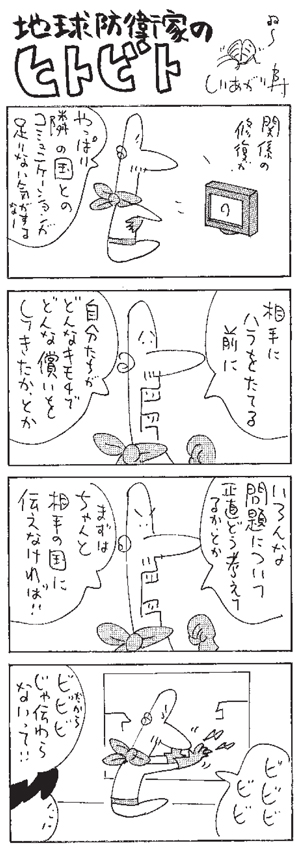 地球防衛家の
ヒトビト
しりあがり寿
関係の
修復が
やっぱり
隣の国との
コミュニケーションが
足りない気がする
なー
相手に
ハラをたてる
前に
自分たちが
どんなキモチで
どんな償いを
してきたか、とか
いろんな
問題について
正直どう考えて
るかとか
まずは
ちゃんと
相手の国に
伝えなければ!!
ビビビ
ビビ
だから
ビビビ
じゃ伝わら
ないって!!